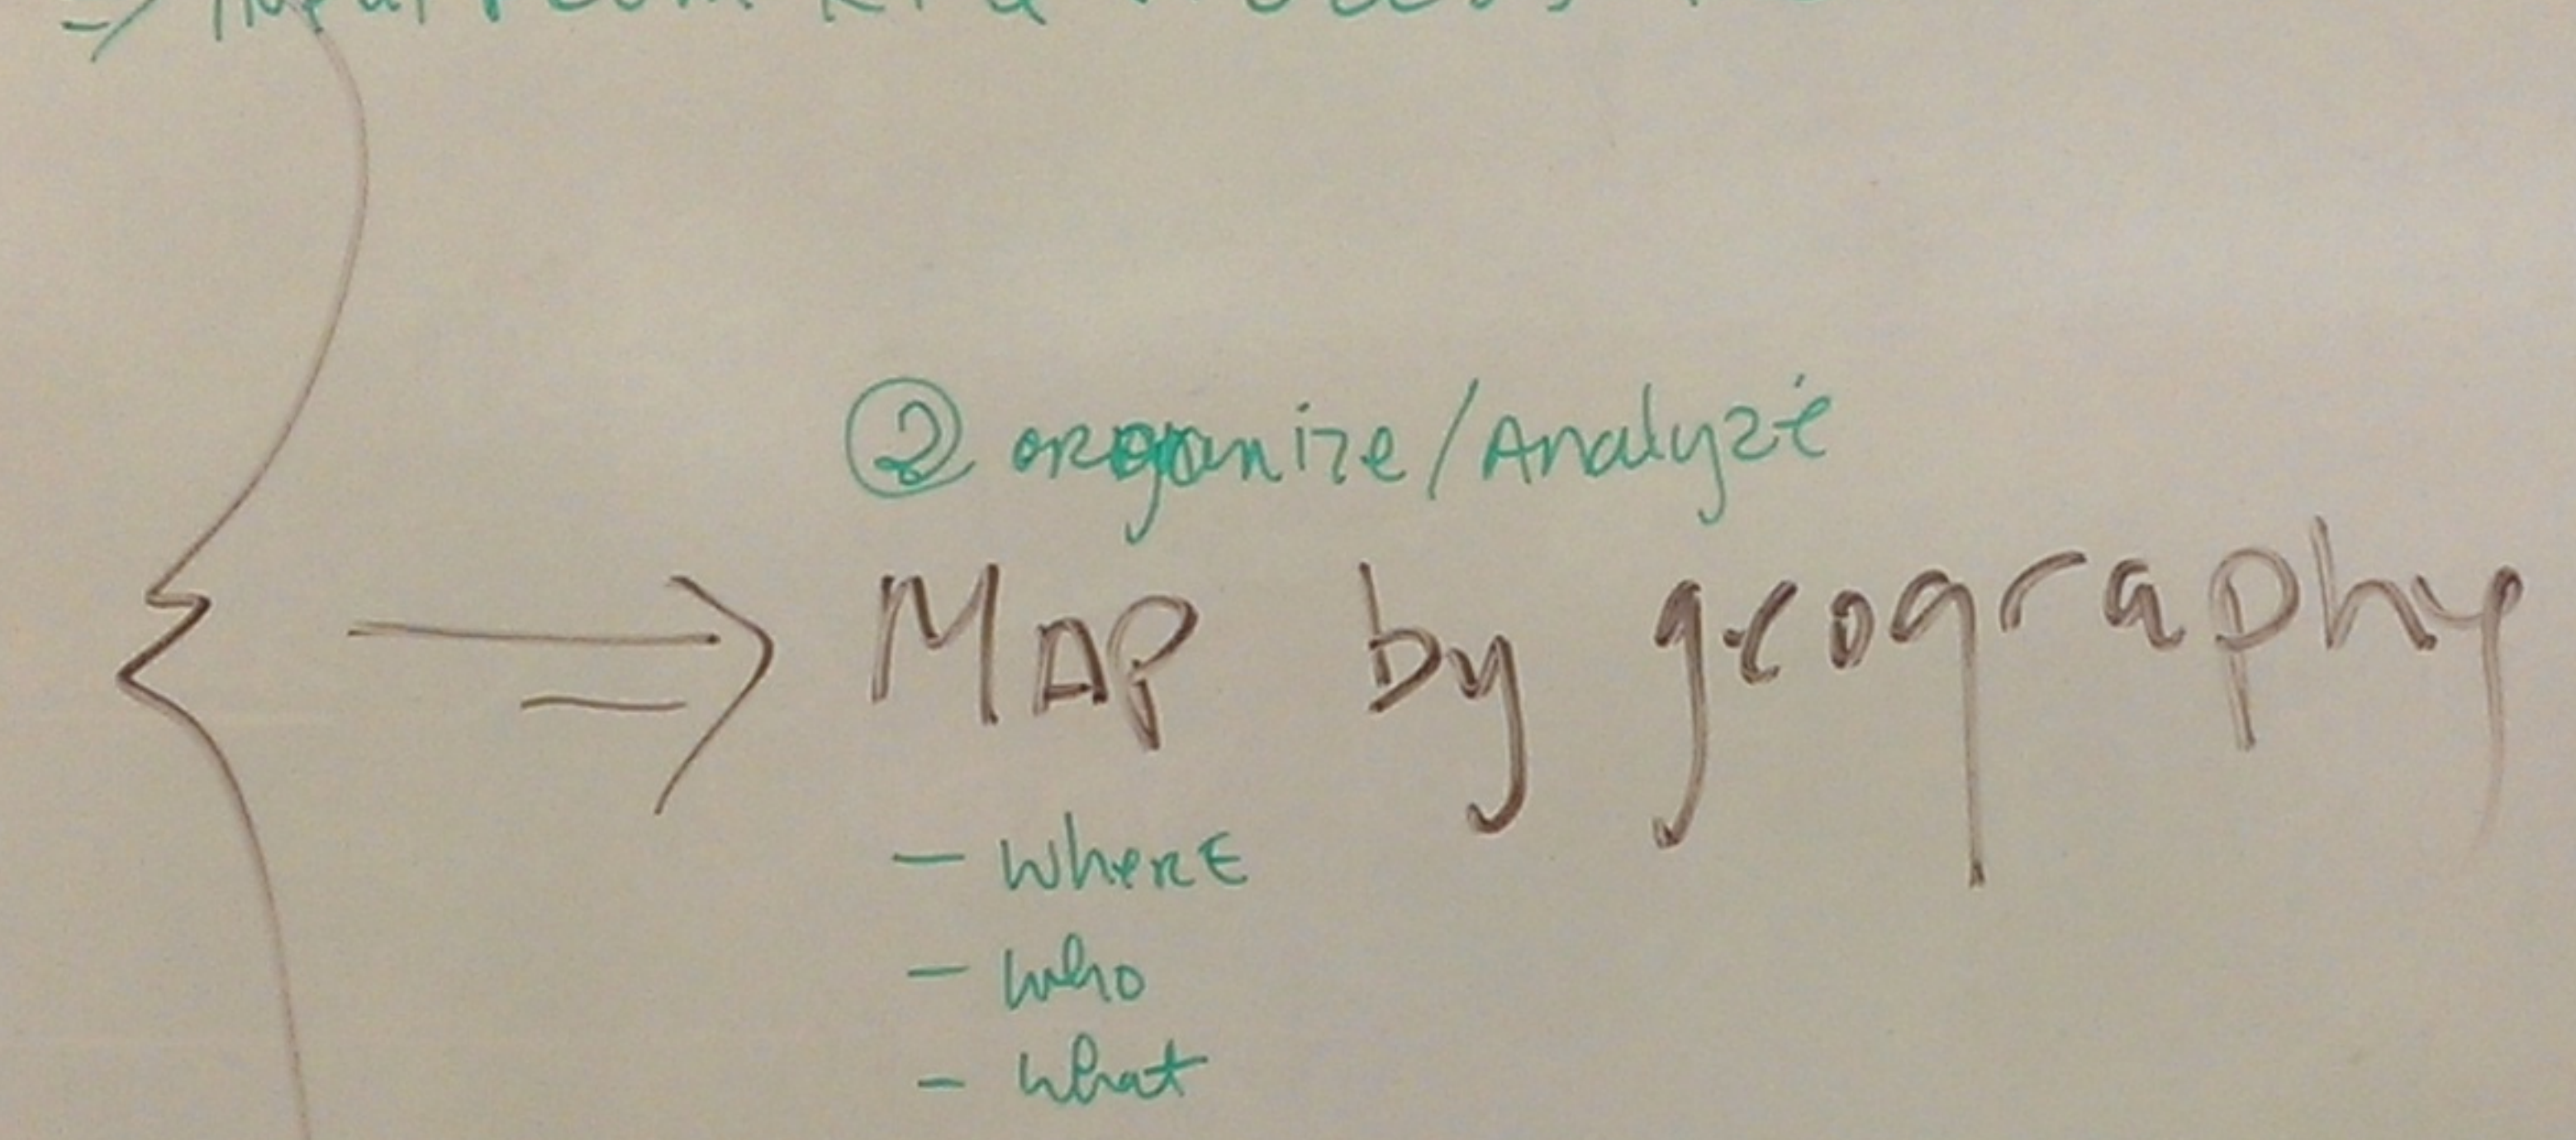 ② organize/Analyze
MAP by geography
- where
- who
- what